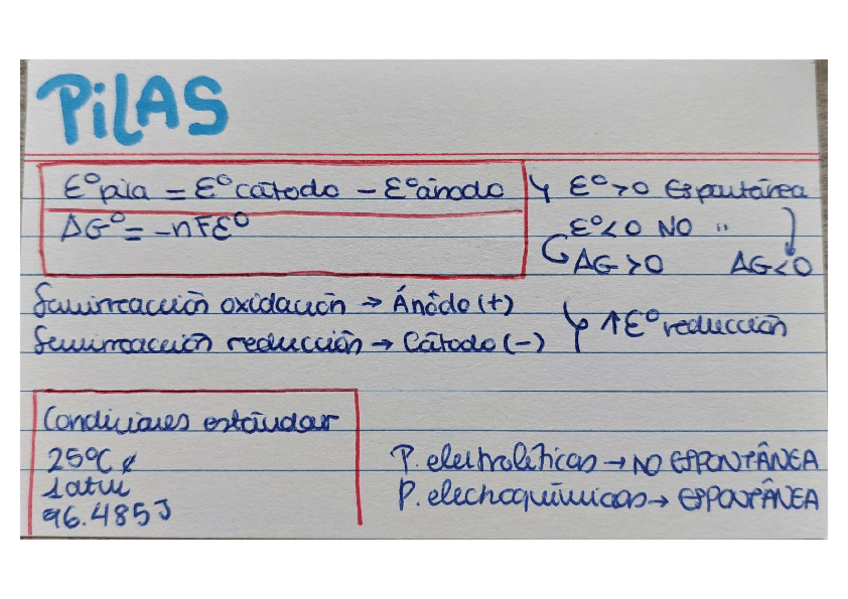 PILAS
E°pila = E°cátodo - E°ánodo ↳ E°>0 Espontánea
ΔG° = -nFE° E°<0 NO "
ΔG>0 ΔG<0
Semirreacción oxidación → Ánodo (+)
Semirreacción reducción → Cátodo (-) ↳ ↑E° reducción
Condiciones estándar
25°C
1 atm
96.485J
P. electrolíticas → NO ESPONTÁNEA
P. electroquímicas → ESPONTÁNEA